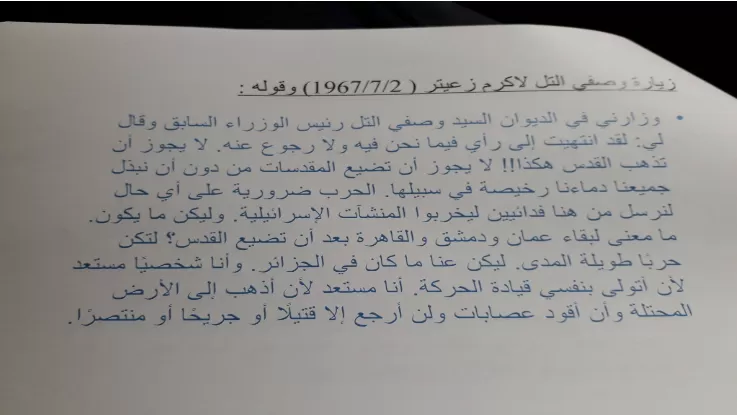 زيارة وصفي التل لاكرم زعيتر ( 1967/7/2) وقوله :
• وزارني في الديوان السيد وصفي التل رئيس الوزراء السابق وقال
لي: لقد انتهيت إلى رأي فيما نحن فيه ولا رجوع عنه. لا يجوز أن
تذهب القدس هكذا!!! لا يجوز أن تضيع المقدسات من دون أن نبذل
جميعنا دماءنا رخيصة في سبيلها. الحرب ضرورية على أي حال
لنرسل من هنا فدائيين ليخربوا المنشآت الإسرائيلية. وليكن ما يكون.
ما معنى لبقاء عمان ودمشق والقاهرة بعد أن تضيع القدس؟ لتكن
حربًا طويلة المدى. ليكن عنا ما كان في الجزائر. وأنا شخصيًا مستعد
لأن أتولى بنفسي قيادة الحركة. أنا مستعد لأن أذهب إلى الأرض
المحتلة وأن أقود عصابات ولن أرجع إلا قتيلًا أو جريحًا أو منتصرًا.